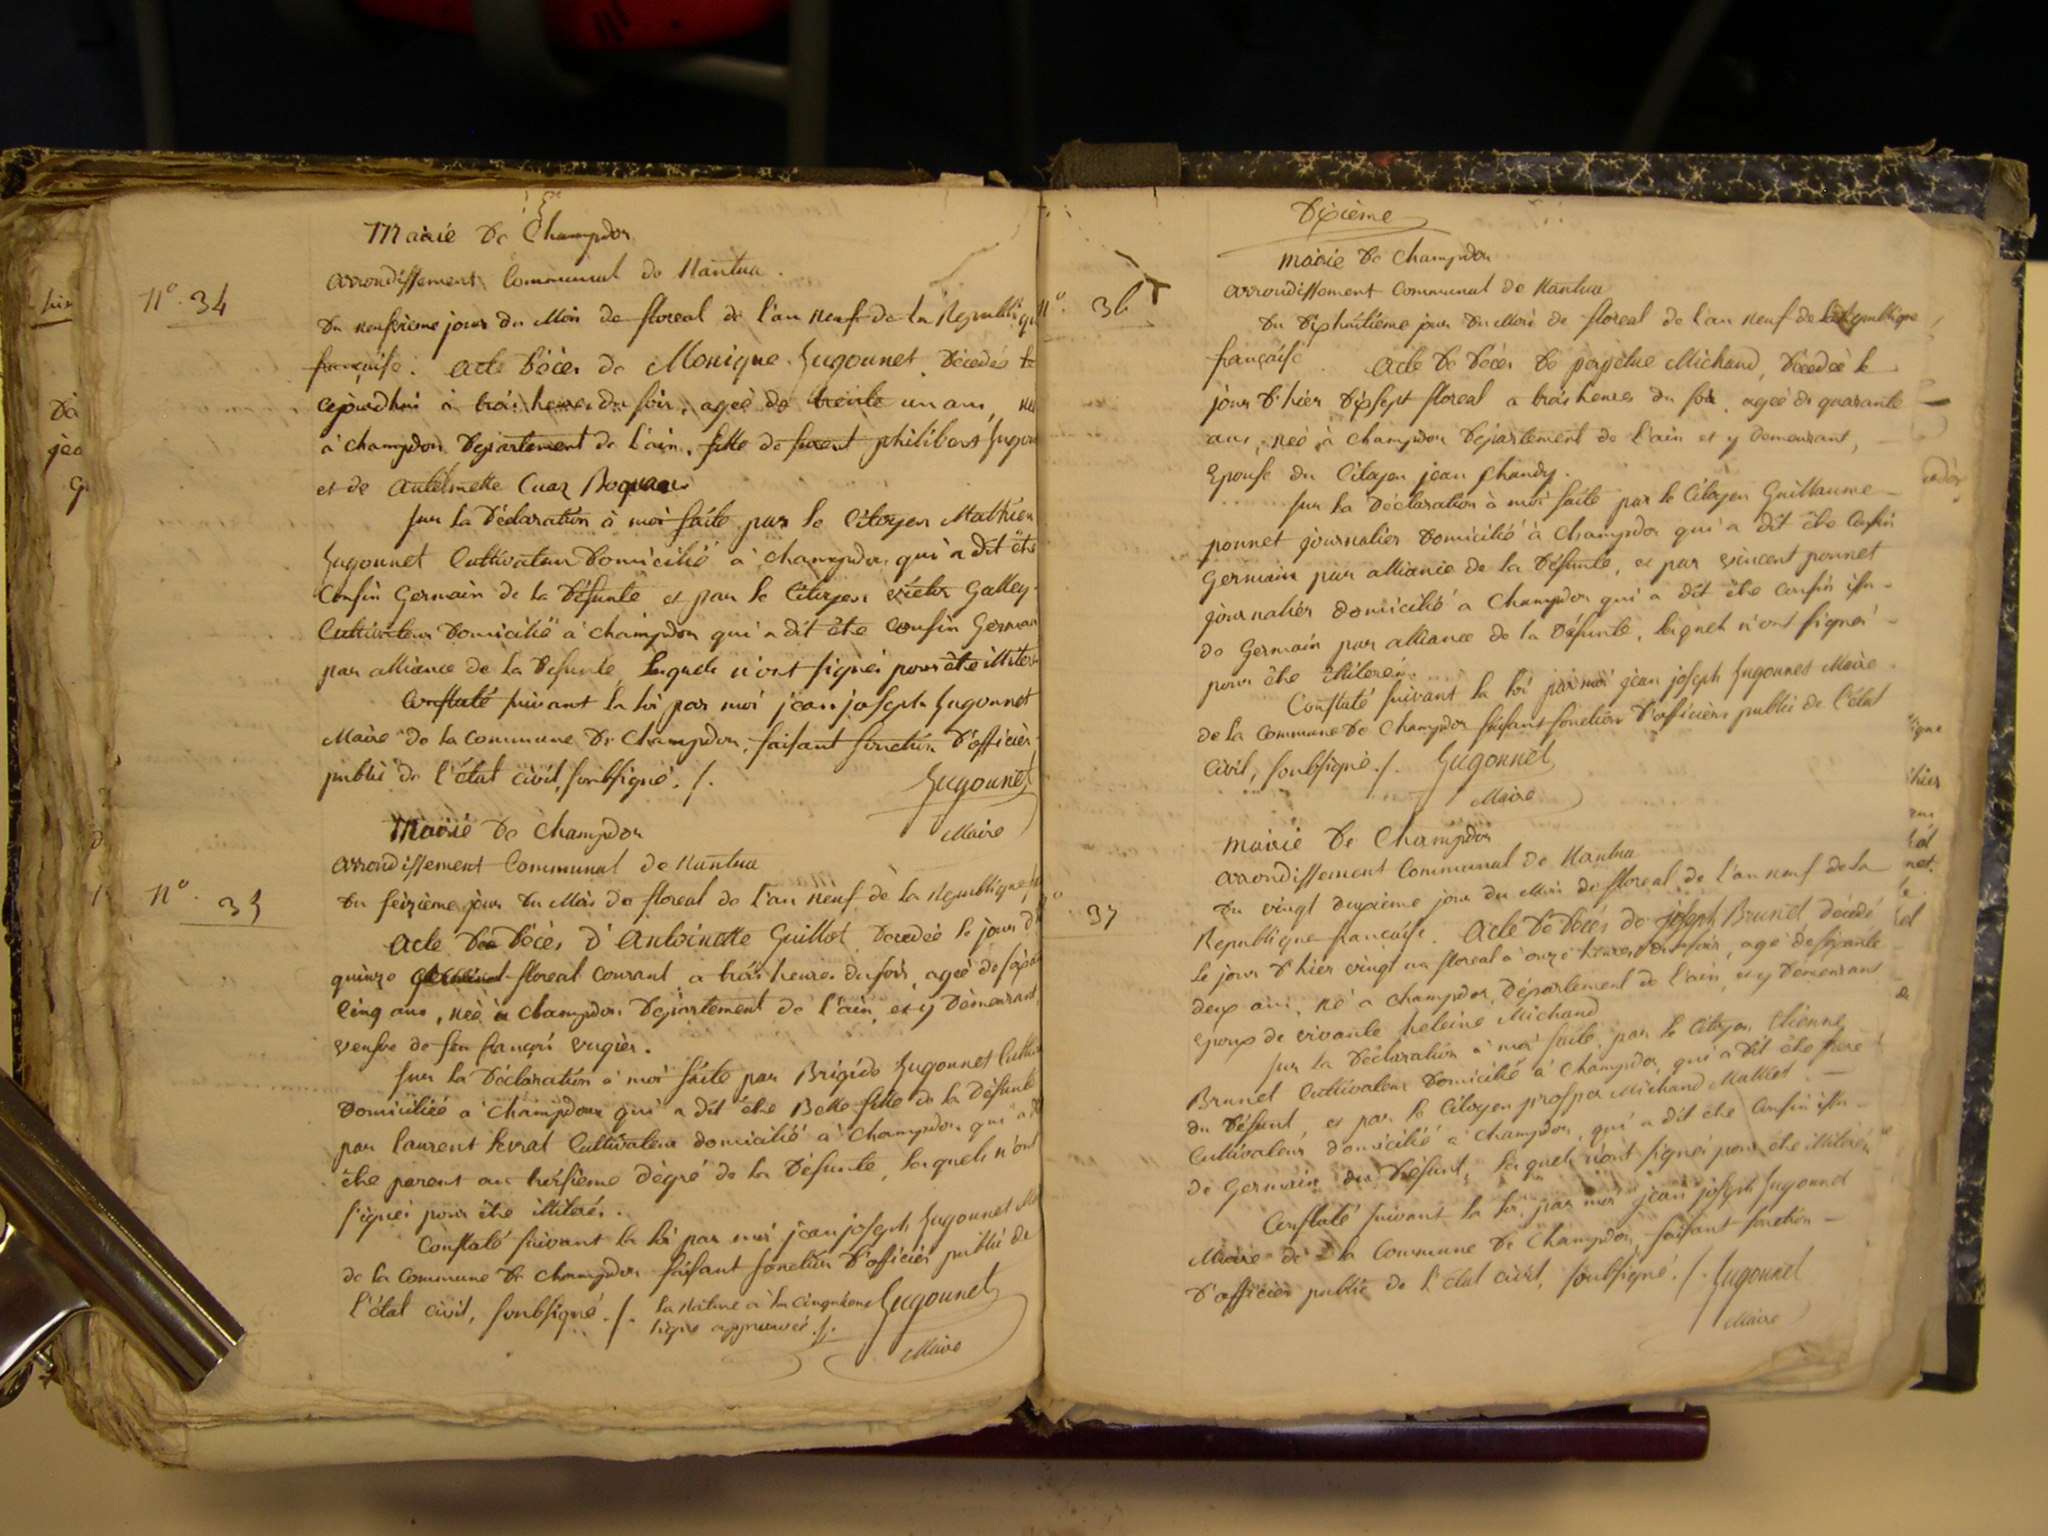 Mairie De Champdor
arrondissement Communal de Nantua.
N°. 34
Du neufvieme jour du Mois de floreal de l'an neuf de la Republique
française. Acte Décès de Monique Gugonnet, Décedés le
cejourdhui à trois heures du soir, ageé de trente un ans, née
à champdor Departement de l'ain, fille de philibert Gugonnet
et de Antelmette Cuaz
Sur la Déclaration à moi faite par le Citoyen Mathieu
Gugonnet Cultivateur Domicilié à champdor, qui a dit être
Cousin Germain de la Défunte, et par le Citoyen victor Galley
Cultivateur Domicilié à champdor qui a dit être Cousin German
par alliance de la Défunte, lesquels n'ont signés pour être illiterés
Constaté suivant la loi par moi jean joseph Gugonnet
Maire de la commune De Champdor, faisant fonction D'officier
public de l'état civil, soubsigné. /.
Gugonnet
Maire
Mairie De Champdor
arrondissement Communal de Nantua
N°. 35
Du seizième jour Du Mois de floreal de l'an neuf de la Republique
Acte De Décès D'Antoinette Guillot, Decedeé le jour d'
quinze floreal courant, a trois heures du soir, ageé de
Cinq ans, neé à Champdor Département de l'ain, et y Demeurant,
veufve de feu françois vugier.
Sur la Déclaration à moi faite par Brigide Gugonnet
Domiciliée à Champdor qui a dit être Belle fille de la Défunte
par Laurent Levrat Cultivateur domicilié à Champdor qui a dit
être parent au troisieme dégré de la Défunte, lesquels n'ont
signés pour être illiterés.
Constaté suivant la loi par moi jean joseph Gugonnet
de la commune De champdor faisant fonction D'officier public de
l'état civil, soubsigné. /. la rature à la cinquieme
ligne approuvée ./.
Gugonnet
Maire
Dixième
Mairie De Champdor
arrondissement Communal de Nantua
N°. 36
Du Dixhuitieme jour Du Mois de floreal de l'an neuf de la Republique
française. Acte De Décès De perpetue Michaud, Décedeé le
jour D'hier Dixsept floreal a trois heures du soir, ageé de quarante
ans, neé à champdor Département de l'ain et y Demeurant,
Epouse du Citoyen jean Chandy.
Sur la Déclaration à moi faite par le Citoyen Guillaume
ponnet journalier Domicilié à Champdor qui a dit être Cousin
Germain par alliance de la Défunte, et par vincent ponnet
journalier domicilié a Champdor qui a dit être cousin issu
de Germain par alliance de la Défunte, lesquels n'ont signés
pour être illiterés.
Constaté suivant la loi par moi jean joseph Gugonnet Maire
de la Commune De Champdor faisant fonction D'officier public de l'état
Civil, soubsigné. /. Gugonnet
Maire
Mairie De Champdor
arrondissement Communal de Nantua
37
Du vingt deuxieme jour du Mois de floreal de l'an neuf de la
Republique française. Acte De Décès de joseph Brunet décédé
le jour D'hier vingt un floreal à onze heures Du soir, agé de soixante
deux ans, né à Champdor, Département de l'ain, et y Demeurant
Epoux de vivante heleine Michaud
Sur la Déclaration à moi faite par le Citoyen Etienne
Brunet Cultivateur Domicilié à Champdor, qui a dit être frere
du Défunt, et par le Citoyen prosper Michaud Mallet
Cultivateur domicilié à Champdor, qui a dit etre Cousin issu
de Germain du Défunt, lesquels n'ont signés pour être illiterés
Constaté suivant la loi par moi jean joseph Gugonnet
Maire de la Commune De Champdor, faisant fonction
D'officier public de l'état civil, soubsigné. /. Gugonnet
Maire